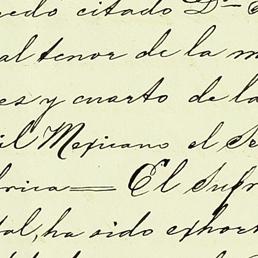 citado D.
al tenor de la m
es y cuarto de la
il Mexicano el Se
brica= El Sufr
tal, ha sido exhor